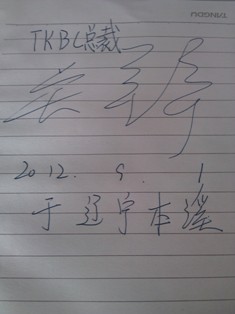 TKBC总裁
2012. 9. 1
于辽宁本溪